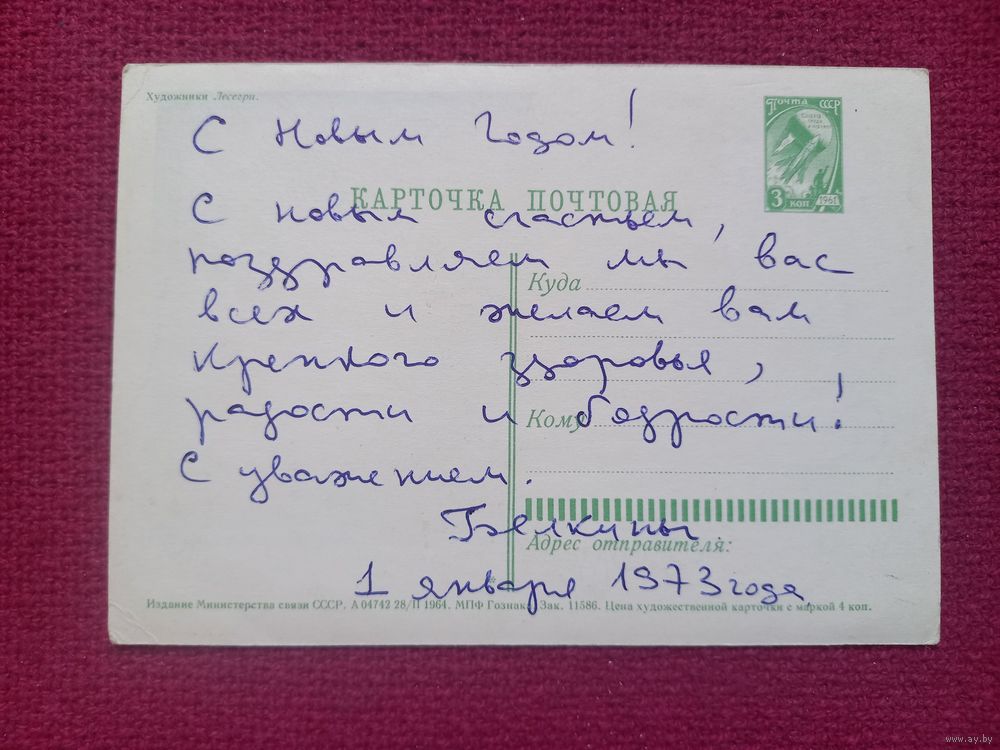 Художники Лесегри.
ПОЧТА СССР
3 КОП 1961
С Новым Годом!
КАРТОЧКА ПОЧТОВАЯ
С новым счастьем,
поздравляем мы вас
Куда
всех и желаем вам
крепкого здоровья,
Кому
радости и бодрости!
С уважением.
Белкины
Адрес отправителя:
1 января 1973 года
Издание Министерства связи СССР. А 04742 28/II 1964. МПФ Гознака. Зак. 11586. Цена художественной карточки с маркой 4 коп.
www.ay.by